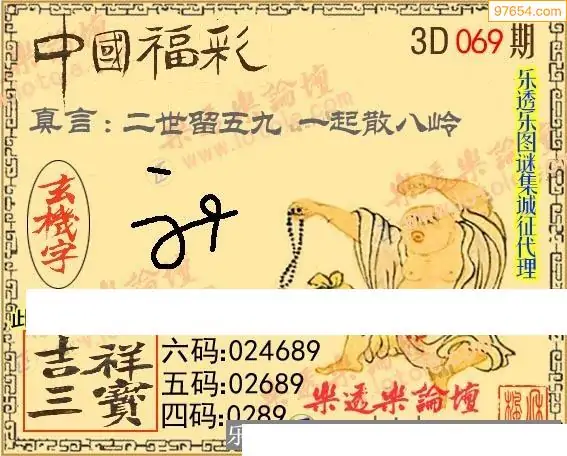 97654.com
中國福彩
3D 069 期
真言：二世留五九 一起散八岭
玄機字
乐透乐图谜集城征代理
吉祥三寶
六码:024689
五码:02689
四码:0289
樂透樂論壇